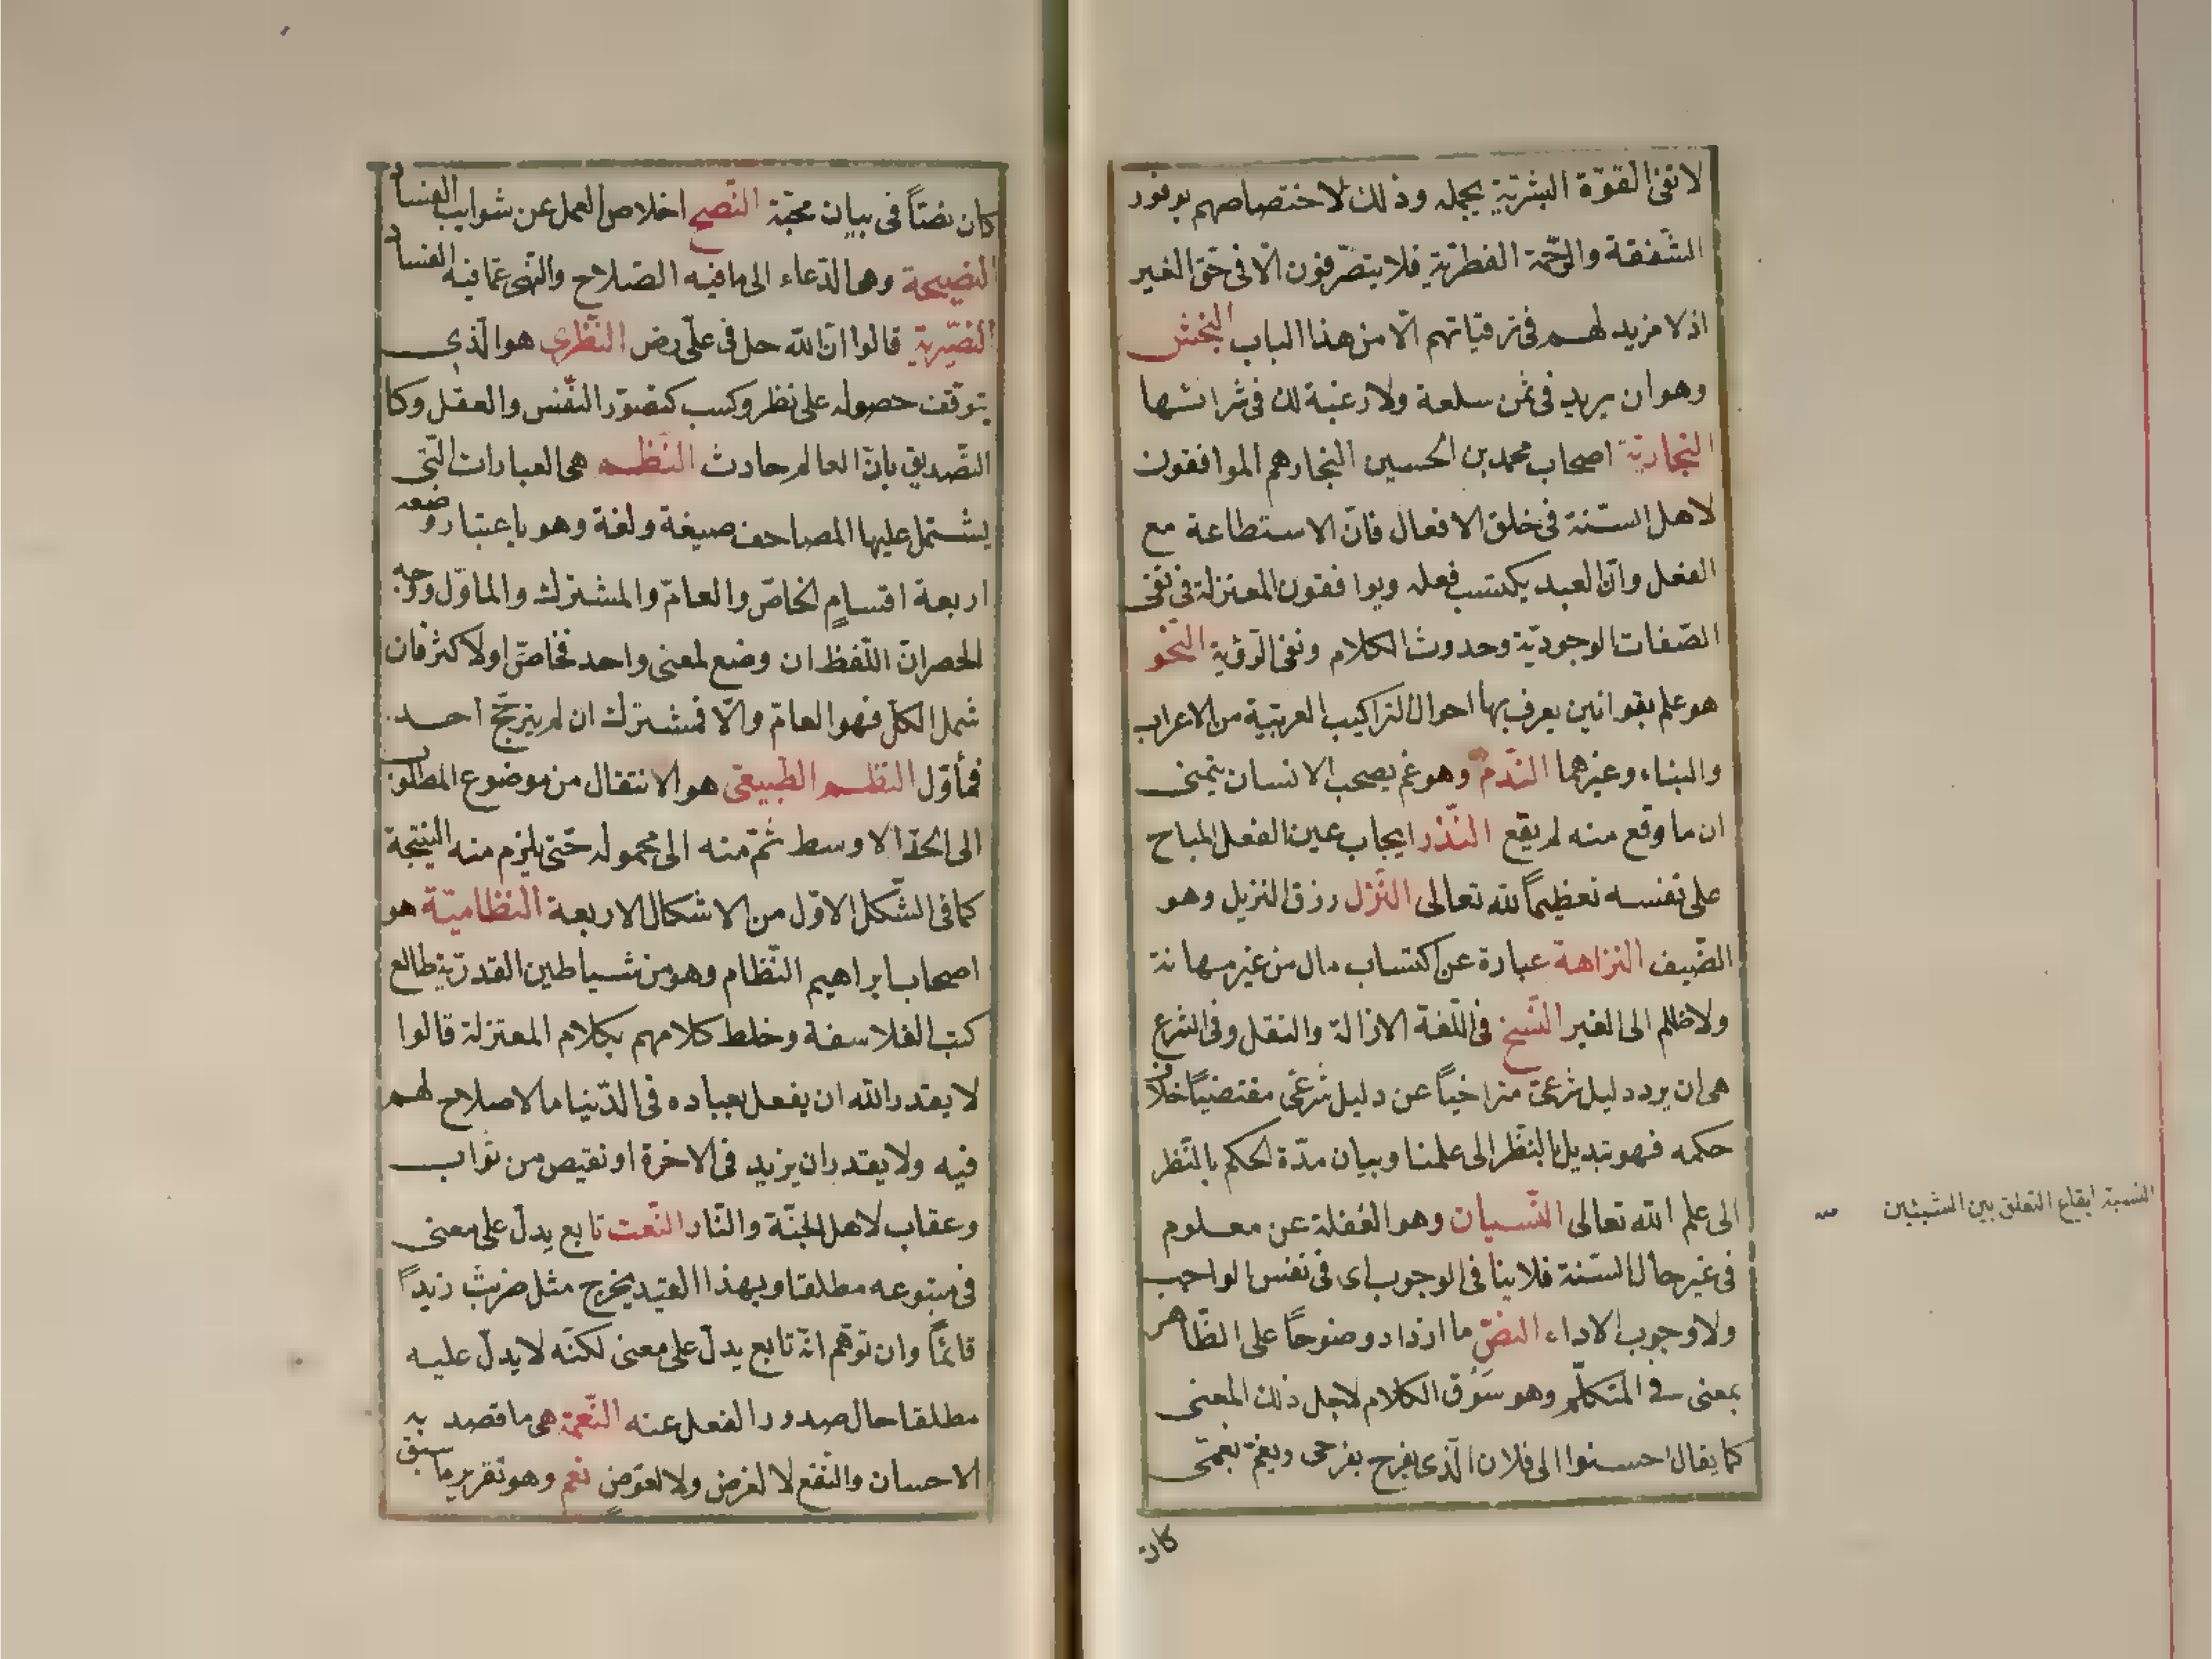 لا تفى القوّة البشريّة بحمله وذلك لاختصاصهم بوفور
الشّفقة والرّحمة الفطريّة فلا يتصرّفون الّا فى حقّ الغير
اذ لا مزيد لهم فى ترقياتهم الّا من هذا الباب النجش
وهو ان يريد فى ثمن سلعة ولا رغبة لك فى شرائها
النجاريّة اصحاب محمد بن الحسين النجار هم الموافقون
لاهل السّنة فى خلق الافعال فانّ الاستطاعة مع
الفعل وانّ العبد يكتسب فعله ويوافقون المعتزلة فى نفى
الصّفات الوجوديّة وحدوث الكلام ونفى الرّؤية النّحو
هو علم بقوانين يعرف بها احوال التراكيب العربيّة من الاعراب
والبناء وغيرهما النّدم وهو غم يصحب الانسان يتمنى
ان ما وقع منه لم يقع النّذر ايجاب عين الفعل المباح
على نفسه تعظيماً لله تعالى النّزل رزق النزيل وهو
الضّيف النزاهة عبارة عن اكتساب مال من غير مهانة
ولا ظلم الى الغير النّسخ فى اللّغة الازالة والنقل وفى الشرع
هى ان يرد دليل شرعىّ متراخياً عن دليل شرعّى مقتضيًا خلاف
حكمه فهو تبديل بالنّظر الى علمنا وبيان مدّة الحكم بالنّظر
الى علم الله تعالى النّسيان وهو الغفلة عن معلوم
فى غير حال السّنة فلا ينافى الوجوب اى فى نفس الواجب
ولا وجوب الاداء النصّ ما ازداد وضوحاً على الظّاهر
بمعنى فى المتكلّم وهو سَوْق الكلام لاجل ذلك المعنى
كما يقال احسنوا الى فلان الّذى يفرح بفرحى ويغمّ بغمّى
كان
النسبة ايقاع التعلق بين الشيئين
كان نصّاً فى بيان محبّة النّصح اخلاص العمل عن شوايب الفساد
النصيحة وهى الدّعاء الى ما فيه الصّلاح والنّهى عمّا فيه الفساد
النصيّرية قالوا انّ الله حل فى علّى رض النّظرى هو الّذى
يتوقّف حصوله على نظر وكسب كتصوّر النّفس والعقل وكا
التّصديق بانّ العالم حادث النّظم هى العبارات الّتى
يشتمل عليها المصاحف صيغة ولغة وهو باعتبار وضعه
اربعة اقسامٍ الخاصّ والعامّ والمشترك والماوّل ووجه
الحصر انّ اللّفظ ان وضع لمعنى واحد فخاصّ او لاكثر فان
شمل الكلّ فهو العامّ والّا فمشترك ان لم يترجّح احد
فمأوّل النظم الطّبيعىّ هو الانتقال من موضوع المطلوب
الى الحدّ الاوسط ثمّ منه الى محموله حتّى يلزم منه النتيجة
كما فى الشّكل الاوّل من الاشكال الاربعة النظاميّة هو
اصحاب ابراهيم النّظام وهو من شياطين القدريّة طالع
كتب الفلاسفة وخلط كلامهم بكلام المعتزلة قالوا
لا يقدر الله ان يفعل بعباده فى الدّنيا ما لا صلاح لهم
فيه ولا يقدر ان يزيد فى الاخرة او نقيص من ثواب
وعقاب لاهل الجنّة والنّار النّعت تابع يدلّ على معنى
فى متبوعه مطلقا وبهذا القيد يخرج مثل ضربتُ زيداً
قائماً وان توهّم انّه تابع يدلّ على معنى لكنّه لا يدلّ عليه
مطلقا حال صدور الفعل عنه النّعمة هى ما قصد به
الاحسان والنّفع لا لغرض ولا لعوّض نعم وهو تقرير ما سبق